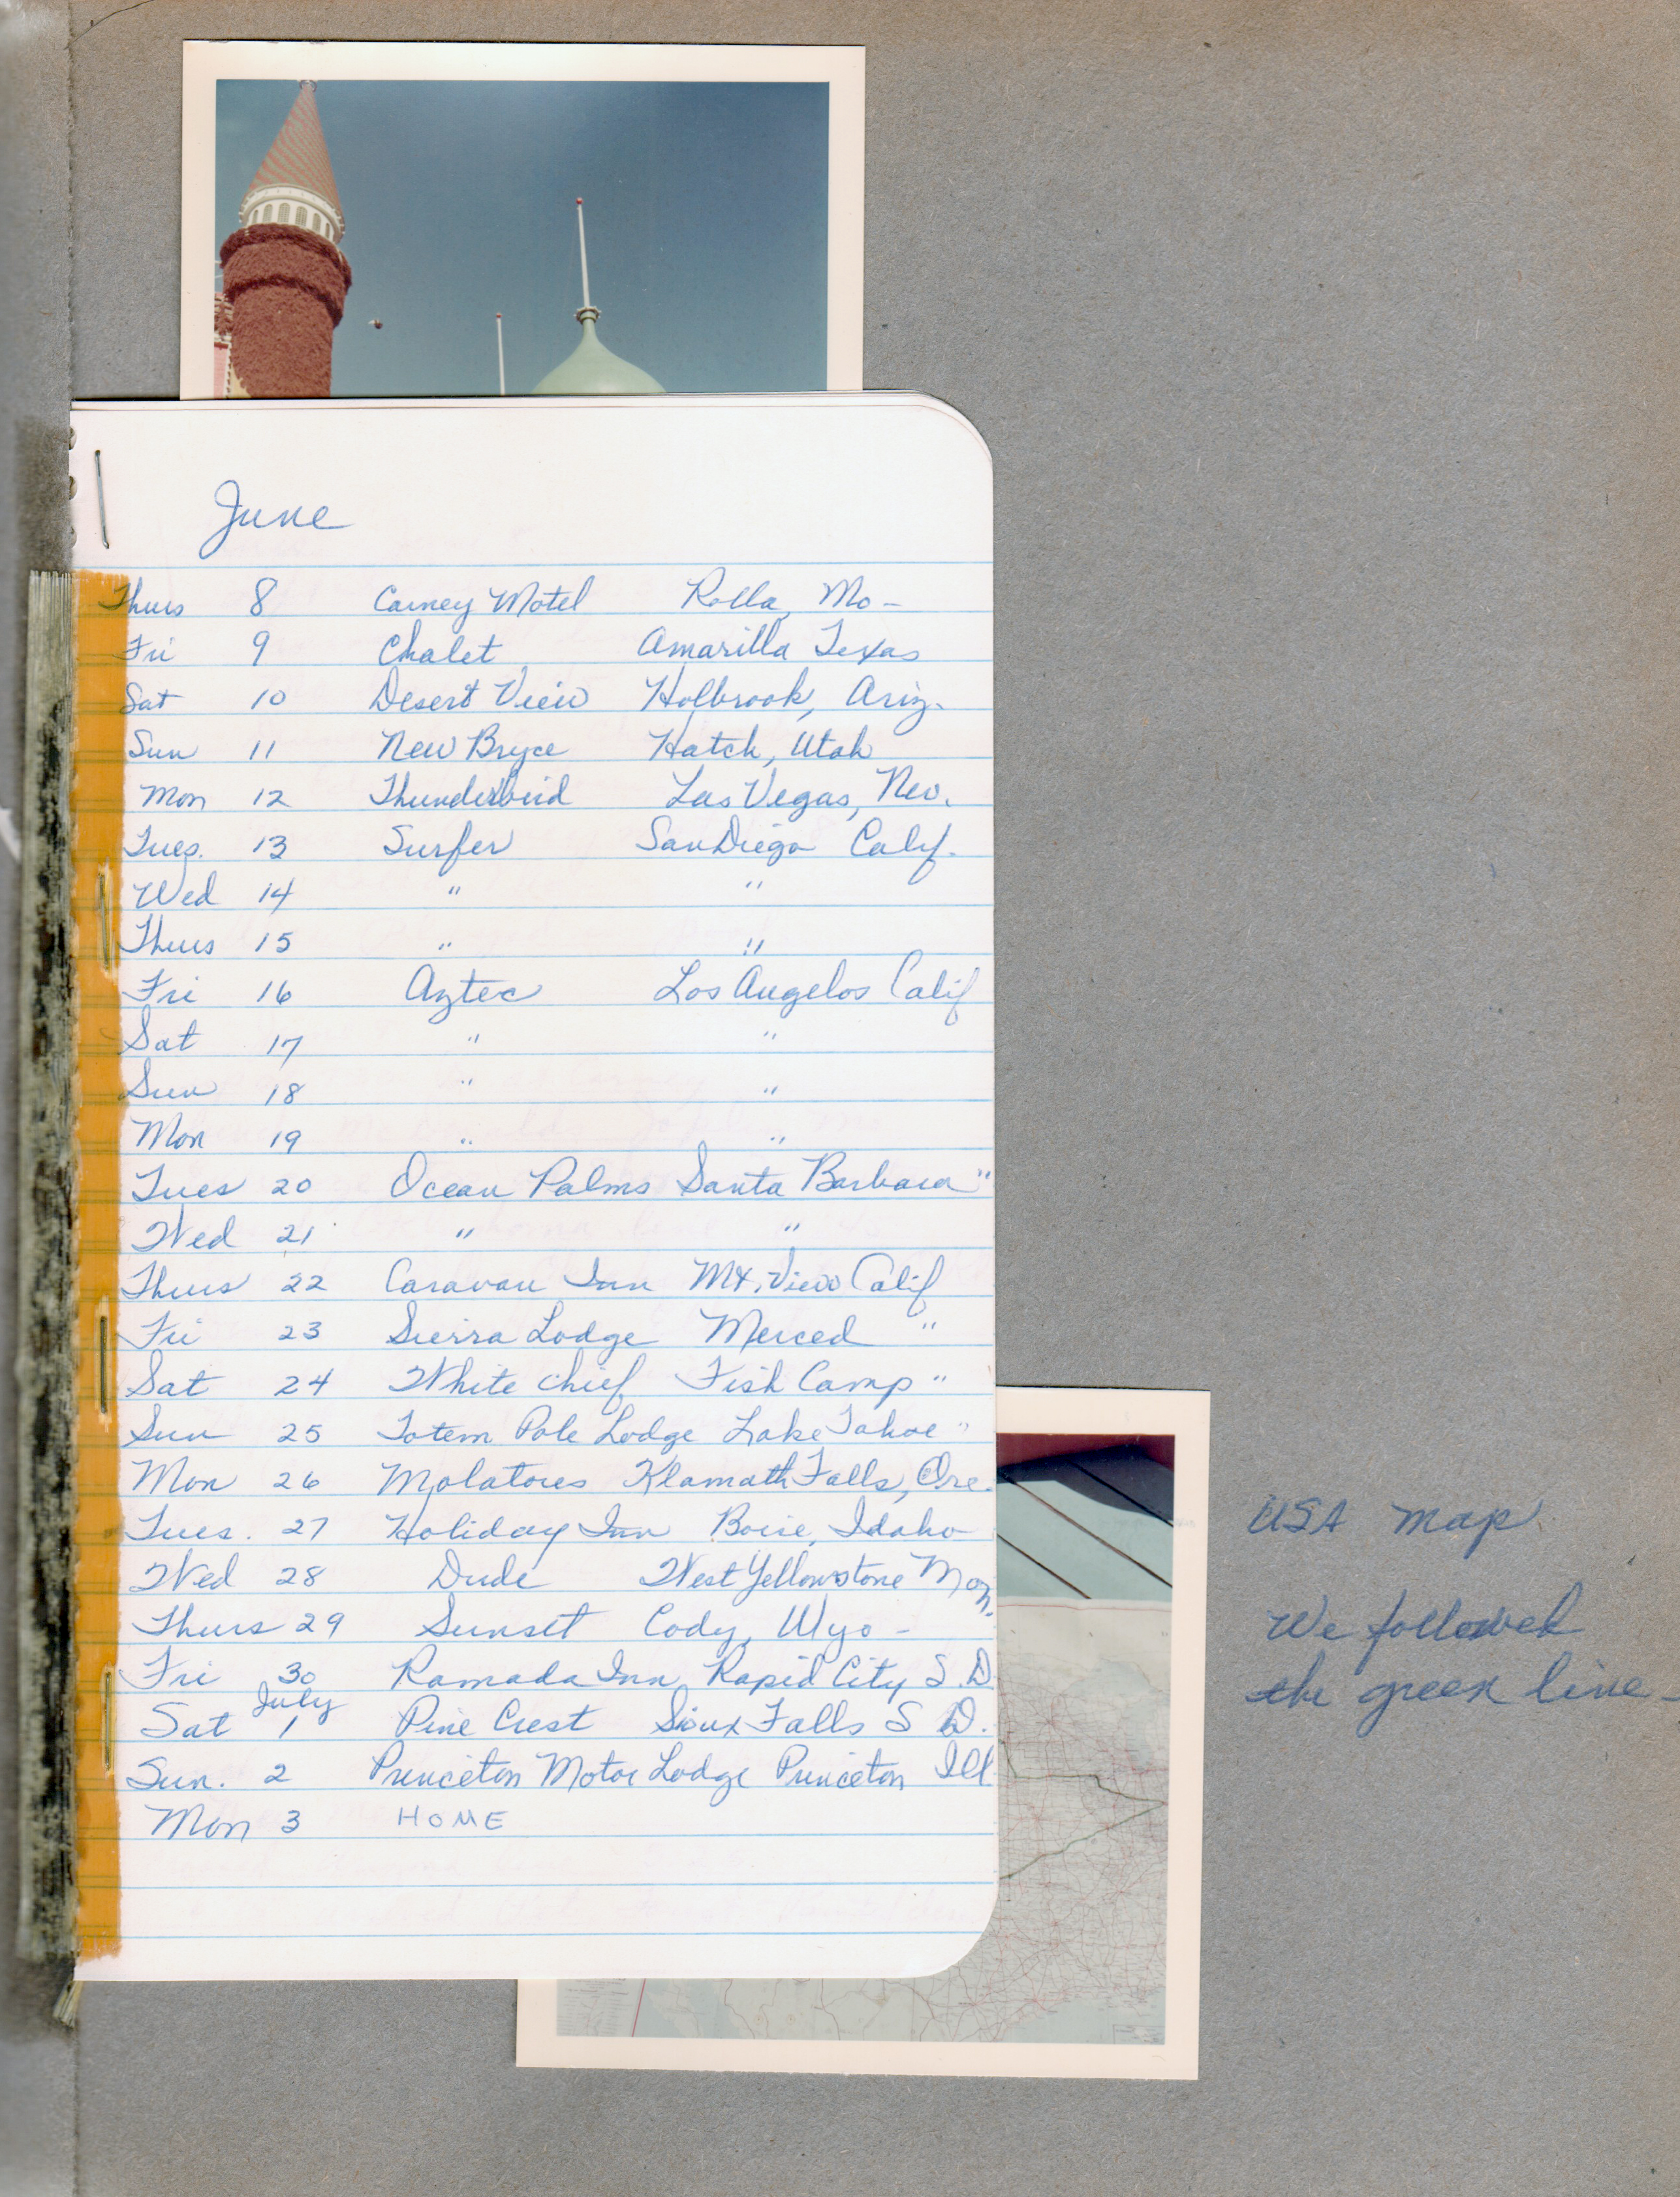 June
Thurs 8 Carney Motel Rolla, Mo -
Fri 9 Chalet Amarilla Texas
Sat 10 Desert View Holbrook, Ariz.
Sun 11 New Bryce Hatch, Utah
Mon 12 Thunderbird Las Vegas, Nev.
Tues. 13 Surfer San Diego Calif.
Wed 14 " "
Thurs 15 " "
Fri 16 Aztec Los Angelos Calif
Sat 17 " "
Sun 18 " "
Mon 19 " "
Tues 20 Ocean Palms Santa Barbara "
Wed 21 " "
Thurs 22 Caravan Inn Mt. View Calif
Fri 23 Sierra Lodge Merced "
Sat 24 White Chief Fish Camp "
Sun 25 Totem Pole Lodge Lake Tahoe "
Mon 26 Molatores Klamath Falls, Ore.
Tues. 27 Holiday Inn Boise, Idaho
Wed 28 Dude West Yellowstone Mon.
Thurs 29 Sunset Cody, Wyo -
Fri 30 Ramada Inn Rapid City S.D.
July
Sat 1 Pine Crest Sioux Falls S D.
Sun. 2 Princeton Motor Lodge Princeton Ill
Mon 3 HOME
USA map
We followed
the green line -